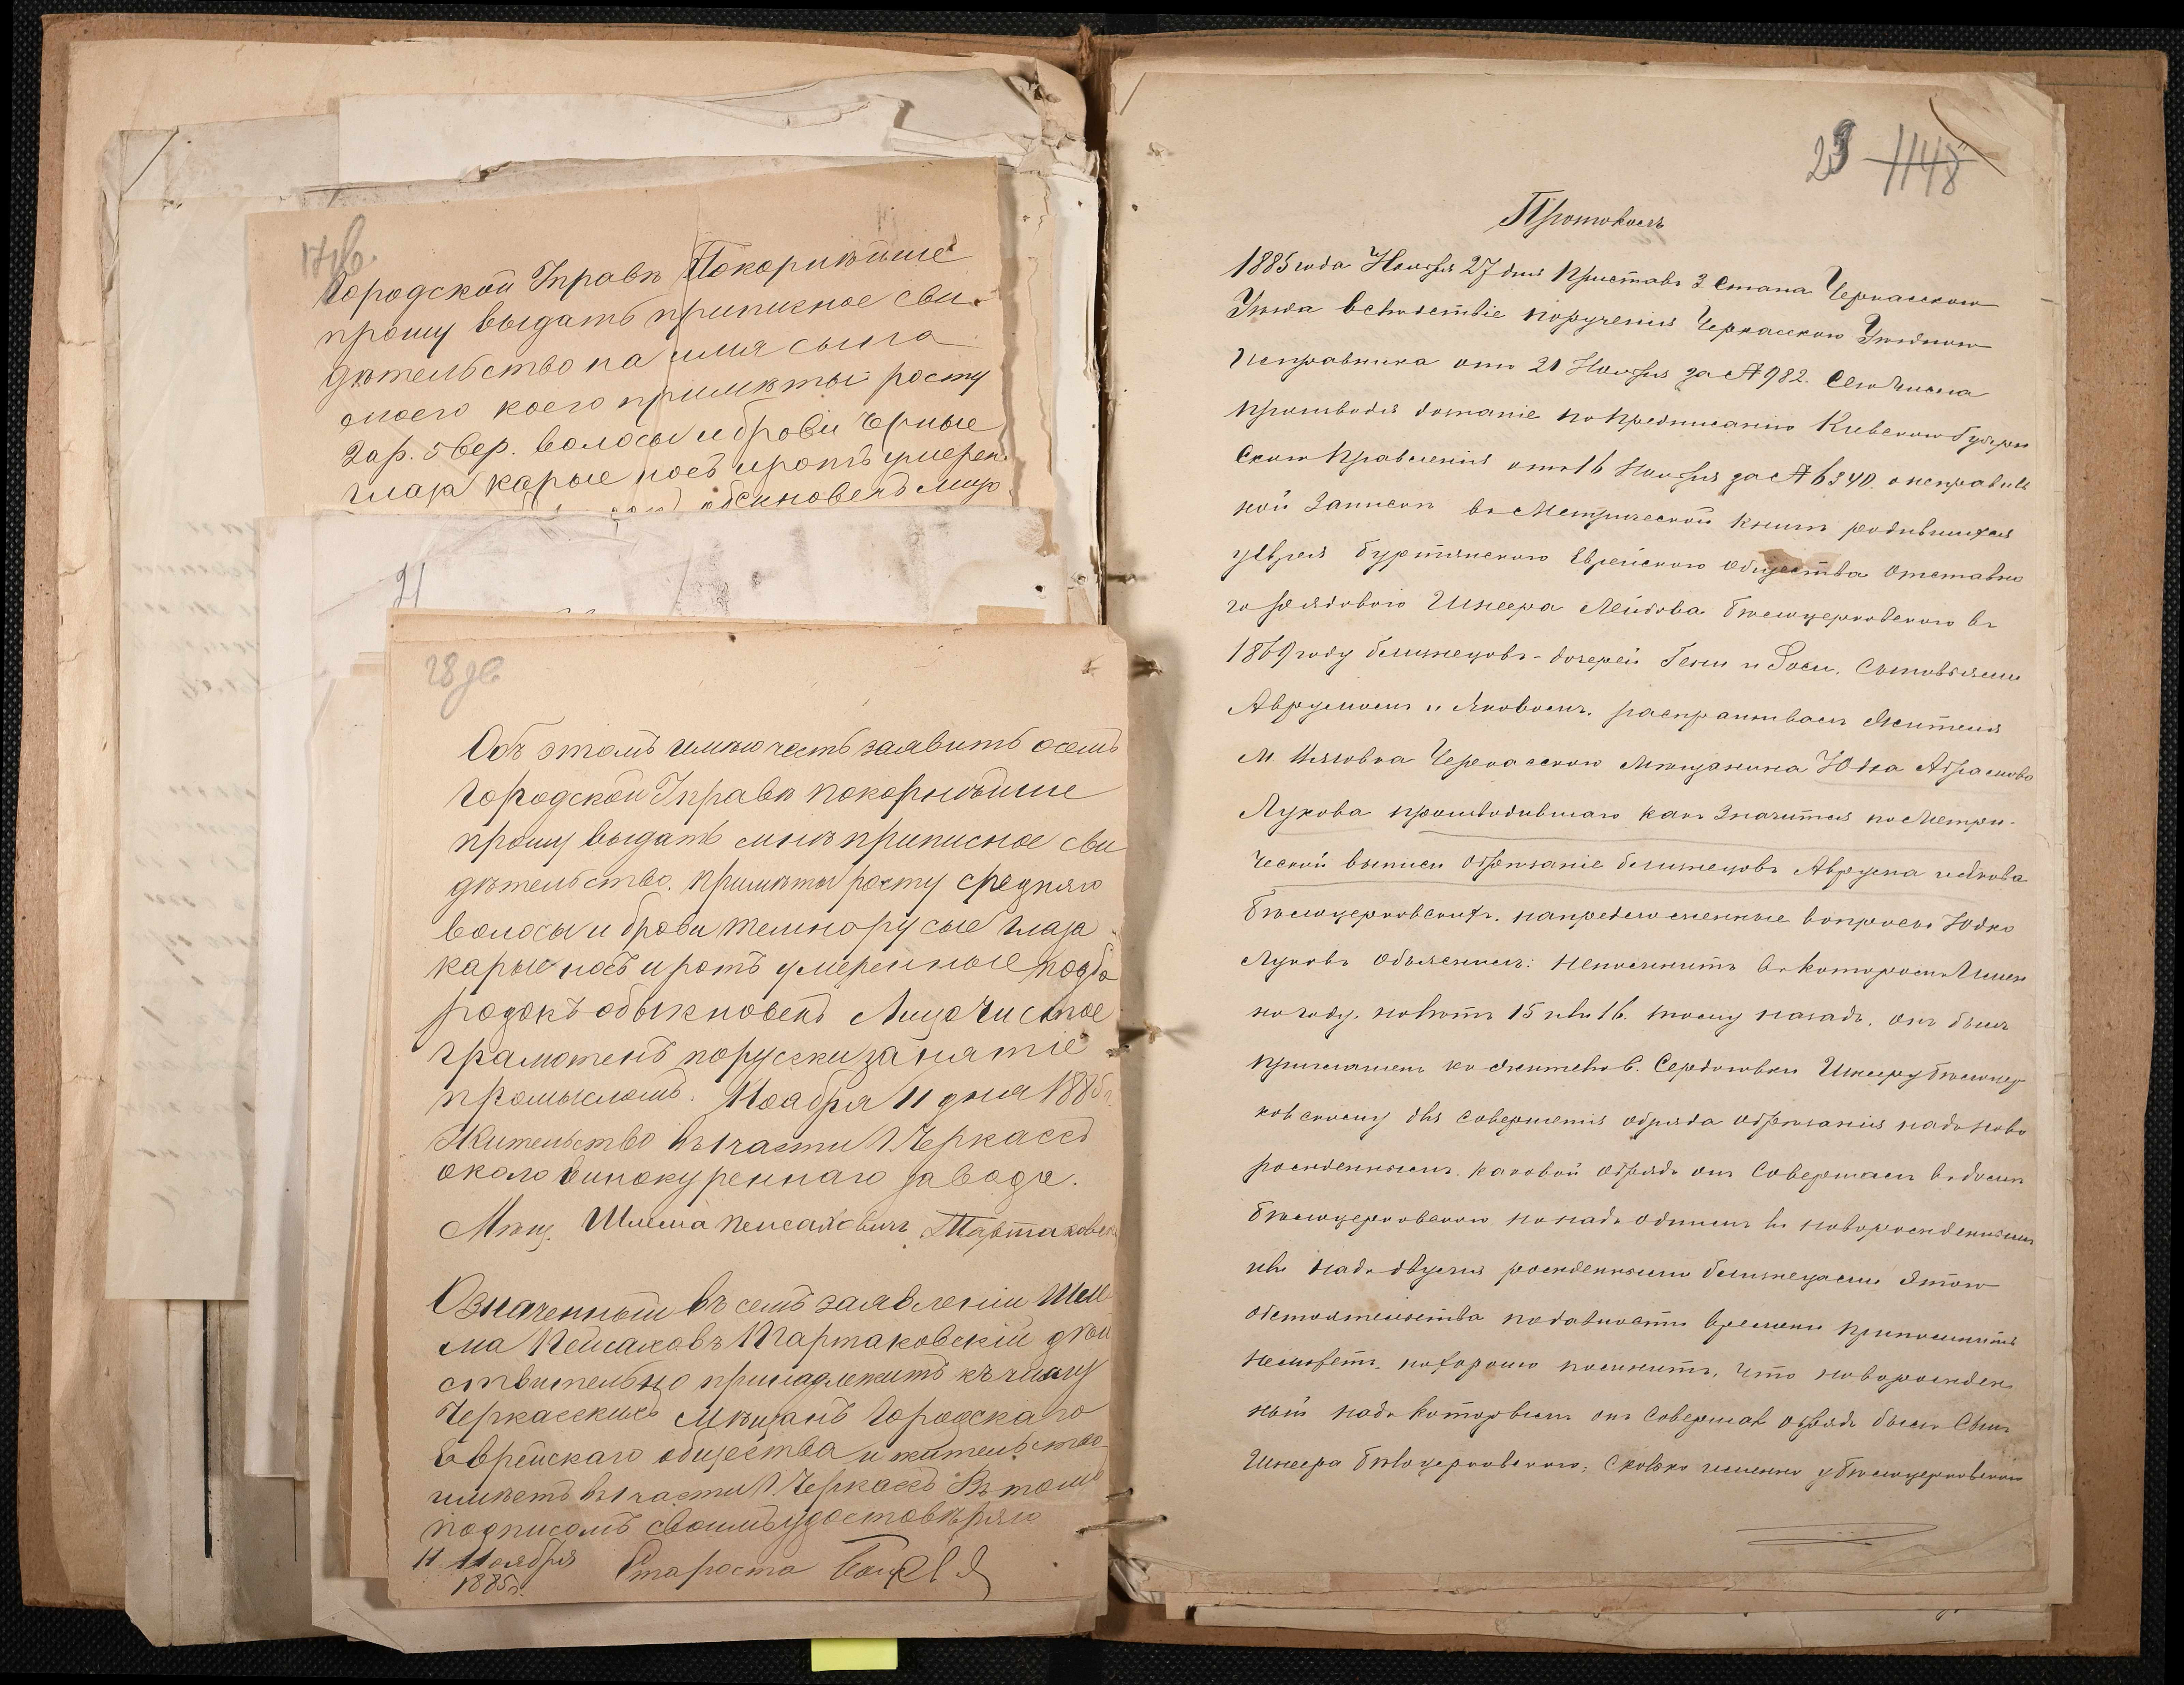 Городской Управѣ Покорнѣйше
прошу выдать приписное сви
дѣтельство на имя сына
моего коего примѣты росту
2 ар. 5 вер. волосы и брови черные
глаза карые носъ и ротъ умерен
обыкновенъ лицо
21
28 об
Объ этомъ имѣю честь заявить осемъ
Городской Управѣ покорнѣйше
прошу выдать мнѣ приписное сви
дѣтельство. примѣты росту средняго
волосы и брови темнорусые глаза
карые носъ и ротъ умеренные подбо
родокъ обыкновенъ Лицо Чистое
грамотенъ порусски занятіе
промысломъ. Ноября 11 дня 1885 г.
Жительство въ 1 части г. Черкассъ
около винокуреннаго завода.
Мѣщ. Шлема Пейсаховичъ Тартаковск
Означенный въ семъ заявленіи Шле
ма Пейсаховъ Тартаковскій дѣй
ствительно принадлежитъ къ числу
Черкасскихъ Мѣщанъ Городскаго
Еврейскаго общества и жительство
имѣетъ въ 1 части г. Черкассъ Въ томъ
подписомъ своимъ удостовѣряю
11 Ноября Староста
1885 г.
29 1148
Протоколъ
1885 года Ноября 27 дня Приставъ 3 Стана Черкасскаго
Уѣзда вслѣдствіе порученія Черкасскаго Уѣзднаго
Исправника отъ 21 Ноября за № 982. Сего Числа
производя дознаніе по Предписанію Кіевскаго Губерн
Скаго Правленія отъ 16 Ноября за № 6340. о неправиль
ной Записи въ Метрической Книгѣ родившихся
у еврея Буртянскаго Еврейскаго Общества Отставна
го рядового Шнеера Лейбова Бѣлоцерковскаго въ
1869 году близнецовъ-дочерей Гени и Роси. Сыновьями
Аврумомъ и Яковомъ. распрашивалъ Жителя
М Черкасскаго Мѣщанина Юдка Абрамова
Лукова производившаго какъ Значится по Метри-
ческой выписи Обрѣзаніе близнецовъ Аврума и Якова
Бѣлоцерковскихъ. на предложенные вопросы Юдко
Луковъ Объяснилъ: Непомнитъ въ которомъ Имен
но году, но лѣтъ 15 или 16. тому назадъ, онъ былъ
приглашенъ къ жителю с. Сердюковки Шнееру Бѣлоцер
ковскому для Совершенія обряда обрѣзанія надъ ново
рожденнымъ. каковой Обрядъ онъ Совершалъ въ домѣ
Бѣлоцерковскаго но надъ однимъ ли новорожденнымъ
или надъ двумя рожденными близнецами Этого
обстоятельства по давности времени припомнить
неможетъ. но хорошо помнитъ, что новорожден
ный надъ Которымъ онъ Совершалъ обрядъ былъ Сынъ
Шнеера Бѣлоцерковскаго; Сколько именно у Бѣлоцерковскаго